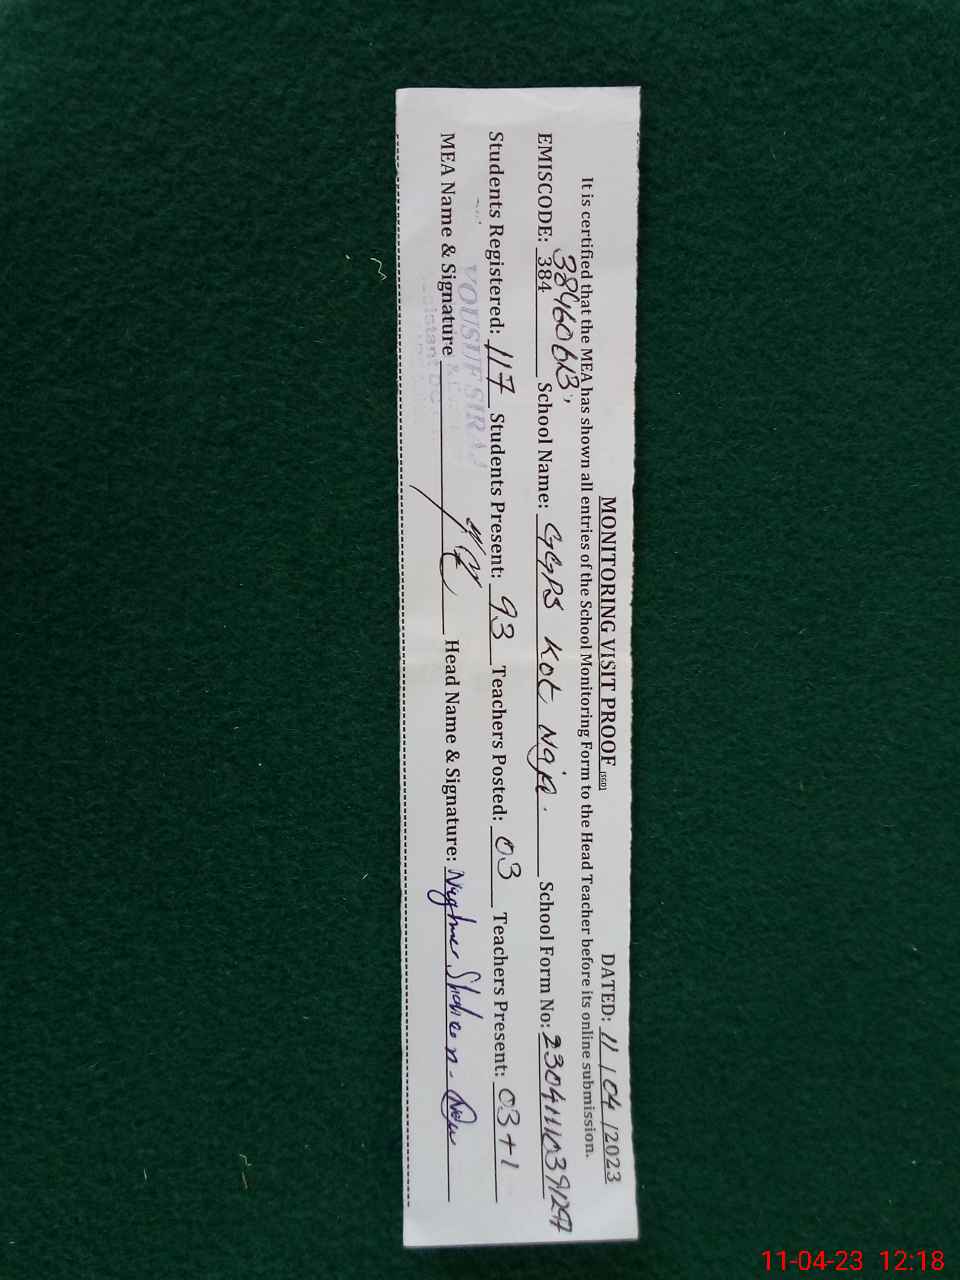 MONITORING VISIT PROOF (SSD) DATED: 11/04/2023
It is certified that the MEA has shown all entries of the School Monitoring Form to the Head Teacher before its online submission.
EMISCODE: 384 School Name: GGPS Kot Naja. School Form No:
Students Registered: 117 Students Present: 93 Teachers Posted: 03 Teachers Present: 03+1
YOUSUF
MEA Name & Signature Head Name & Signature: Shaheen
11-04-23 12:18